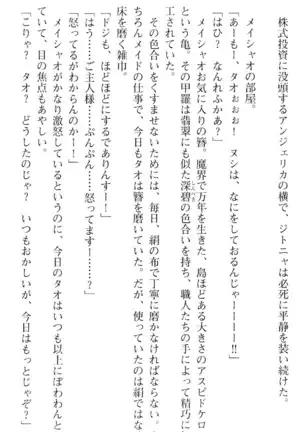 株式投資に没頭するアンジェリカの横で、ジトニャは必死に平静を装い続けた。
メイシャオの部屋。
「あーもー、タオぉぉぉ！　ヌシは、なにをしておるんじゃーーーー!!」
「はひ？　なんれふかぁ？」
メイシャオお気に入りの簪。魔界で万年を生きた、島ほどある大きさのアスピドケロ
という亀。その甲羅は翡翠にも似た深碧の色合いを持ち、職人たちの手によって精巧に
工されていた。
その色合いをくすませないためには、毎日、絹の布で丁寧に磨かなければならない。
ちろんメイドの仕事で、今日もタオは簪を磨いていた。だが、使っていたのは絹ではな
床を磨く雑巾。
「ドジも、ほどほどにするでありんすー！」
「はう……ご主人様……ぷんぷん……怒ってますー……？」
「怒ってるがわからんのかーー！」
メイシャオがかなり激怒しているというのに、今日のタオはいつも以上にぽわわんと
ていて、目の焦点もあやしい。
「こりゃ？　タオ？　どうしたのじゃ？　いつもおかしいが、今日はもっとじゃぞ？」